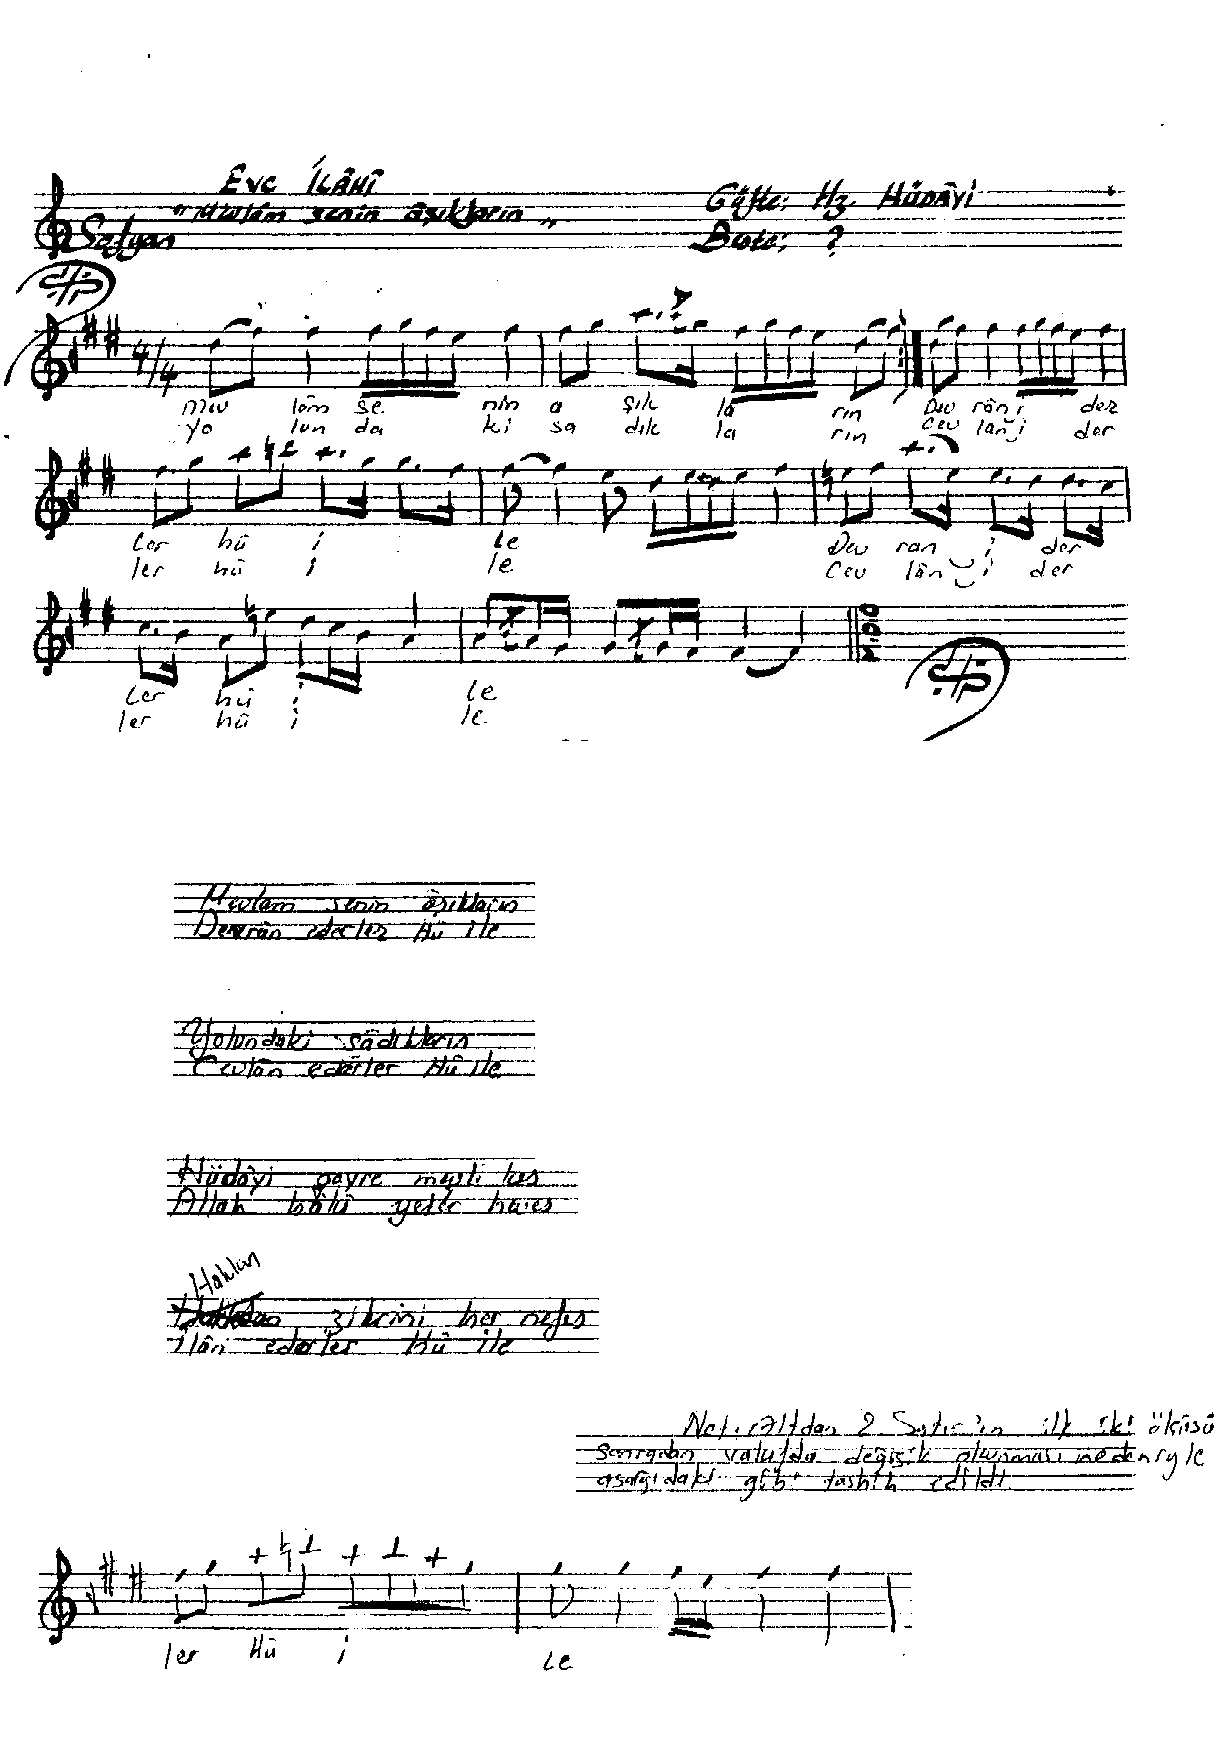 Evc İLÂHÎ
"Mevlâm senin âşıkların"
Güfte: Hz. HÜDÂYİ
Sofyan
Beste: ?
4/4
Mev lâm se nin a şık la rın Dev rân i der
Yo lun da ki sa dık la rın Cev lan i der
ler hû i le Dev ran i der
ler hû i le Cev lân i der
ler hû i le
ler hû i le
Mevlâm senin âşıkların
Devrân ederler Hû ile
Yolundaki sâdıkların
Cevlân ederler Hû ile
Hüdâyi gayre meyli kes
Allah yeter
Hakkın
zikrini her nefes
İlân ederler Hû ile
Not: Alttan 2. Satır'ın ilk iki ölçüsü
sonradan değişik okunması nedeniyle
aşağıdaki gibi tashih edildi
ler Hû i le